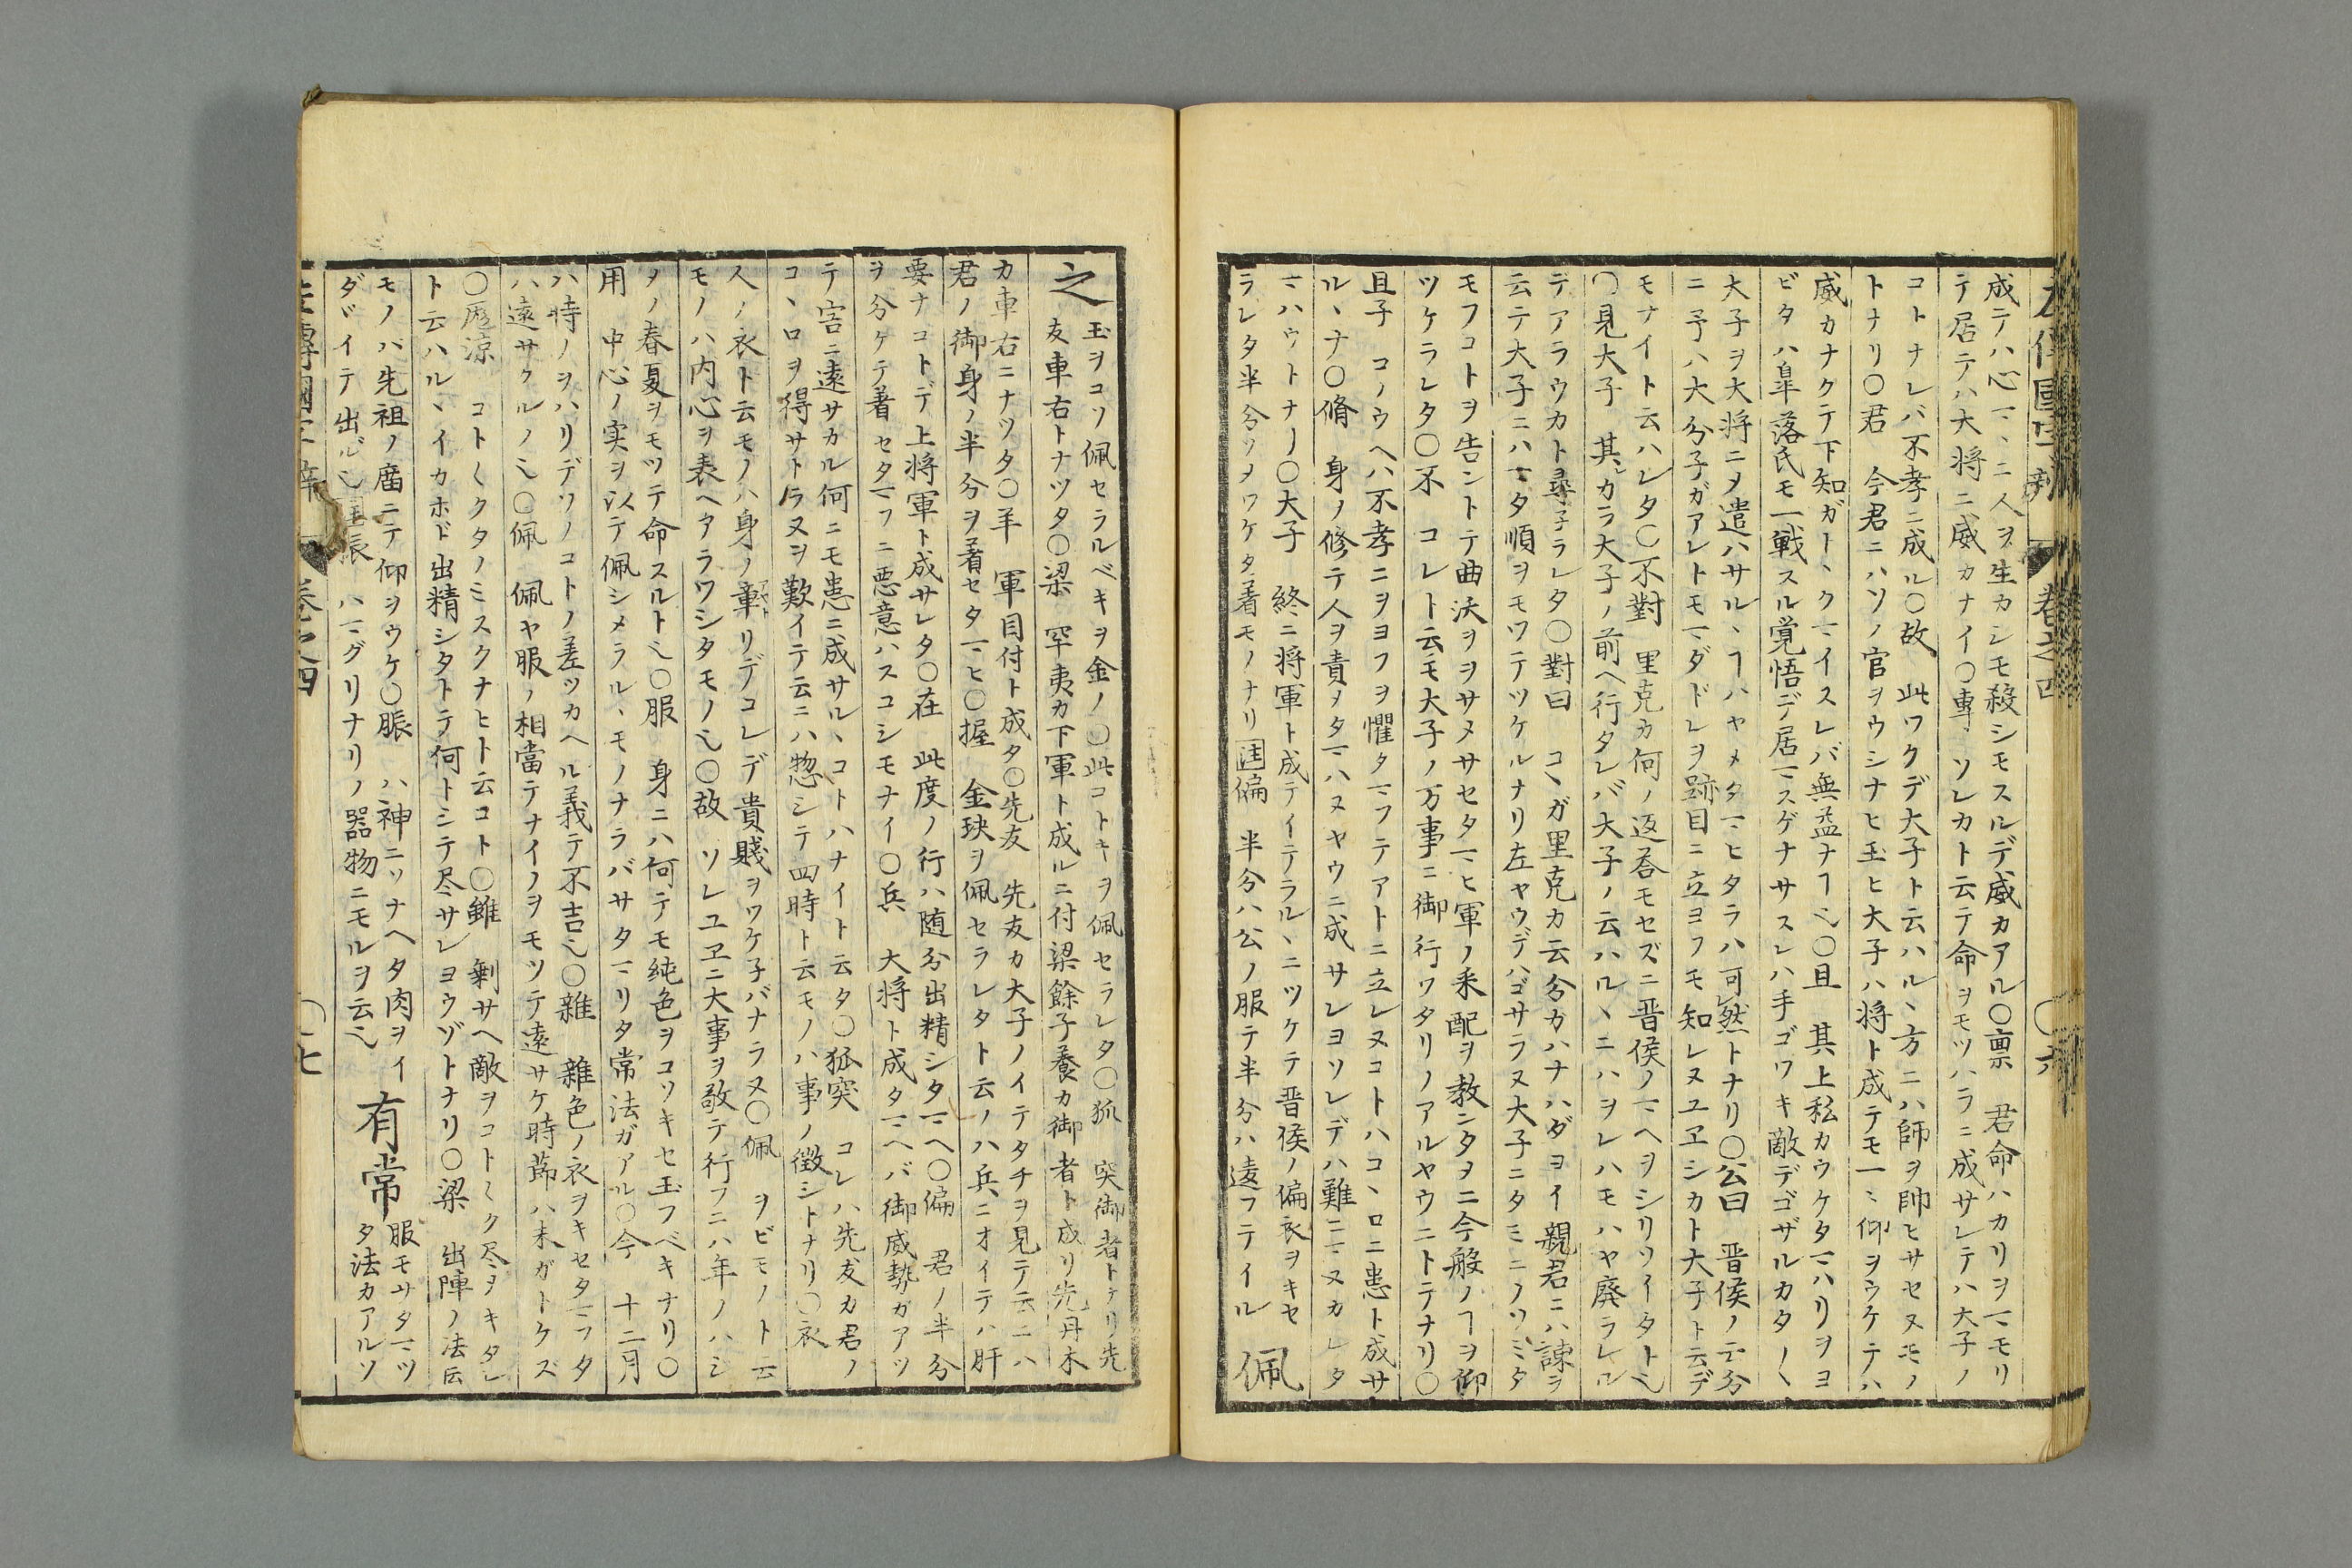 左傳國字辯 卷之四 〇六
成テハ心マヽニ人ヲ生カシモ殺シモスルデ威カアル〇禀 君命ハカリヲマモリ
テ居テハ大将ニ威カナイ〇專 ソレカト云テ命ヲモツハラニ成サレテハ大子ノ
コトナレバ不孝ニ成ル〇故 此ワクデ大子ト云ハルヽ方ニハ師ヲ帥ヒサセヌモノ
トナリ〇君 今君ニハソノ官ヲウシナヒ玉ヒ大子ハ将ト成テモ一ミ仰ヲウケテハ
威カナクテ下知ガトヽクマイスレバ無益ナヿ也〇且 其上私カウケタマハリヲヨ
ビタハ皐落氏モ一戦スル覚悟デ居マスゲナサスレハ手ゴワキ敵デゴザルカタ〱
大子ヲ大将ニメ遣ハサルヽヿハヤメタマヒタラハ可然トナリ〇公曰 晋侯ノ云分
ニ予ハ大分子ガアレトモマダドレヲ跡目ニ立ヨフモ知レヌユヱシカト大子ト云デ
モナイト云ハレタ〇不對 里克カ何ノ返荅モセズニ晋侯ノマヘヲシリソイタト也
〇見大子 其カラ大子ノ前ヘ行タレバ大子ノ云ハルヽニハヲレハモハヤ廃ラレル
デアラウカト尋子ラレタ〇對曰 コヽガ里克カ云分カハナハダヨイ親君ニハ諌ヲ
云テ大子ニハマタ順ヲモツテツケルナリ左ヤウデハゴサラヌ大子ニタミニノソミタ
モフコトヲ告ントテ曲沃ヲヲサメサセタマヒ軍ノ釆配ヲ教シタヲニ今般ノヿヲ仰
ツケラレタ〇不 コレト云モ大子ノ万事ニ御行ワタリノアルヤウニトテナリ〇
且子 コノウヘハ不孝ニヲヨフヲ懼タマフテアトニ立レヌコトハコヽロニ患ト成サ
ルヽナ〇脩 身ノ修テ人ヲ責ヲタマハヌヤウニ成サレヨソレデハ難ニマヌカレタ
マハウトナリ〇大子 終ニ将軍ト成テイテラルヽニツケテ晋侯ノ偏衣ヲキセ
ラレタ半分ツヽヲワケタ著モノナリ 注偏 半分ハ公ノ服テ半分ハ違フテイル 佩
之 玉ヲコソ佩セラルベキヲ金ノ〇此コトキヲ佩セラレタ〇狐 突御者トナリ先
友車右トナツタ〇梁 罕夷カ下軍ト成ルニ付梁餘子養カ御者ト成リ先丹木
カ車右ニナツタ〇羊 軍目付ト成タ〇先友 先友カ大子ノイテタチヲ見テ云ニハ
君ノ御身ノ半分ヲ著セタマヒ〇握 金玦ヲ佩セラレタト云ノハ兵ニオイテハ肝
要ナコトデ上将軍ト成サレタ〇在 此度ノ行ハ随分出精シタマヘ〇偏 君ノ半分
ヲ分ケテ著セタマフニ悪意ハスコシモナイ〇兵 大将ト成タマヘバ御威勢ガアツ
テ害ニ遠サカル何ニモ患ニ成サルヽコトハナイト云タ〇狐突 コレハ先友カ君ノ
コヽロヲ得サトラヌヲ歎イテ云ニハ惣シテ四時ト云モノハ事ノ徴シトナリ〇衣
人ノ衣ト云モノハ身ノ章リデコレデ貴賎ヲワケ子バナラヌ〇佩 ヲビモノト云
モノハ内心ヲ表ヘアラワシタモノ也〇故 ソレユヱニ大事ヲ敬テ行フニハ年ノハシ
メノ春夏ヲモツテ命スルト也〇服 身ニハ何テモ純色ヲコソキセ玉フベキナリ〇
用 中心ノ実ヲ以テ佩シメラルヽモノナラバサタマリタ常法ガアル〇今 十二月
ハ時ノヲハリデソノコトノ差ツカヘル義テ不吉也〇雜 雜色ノ衣ヲキセタマフタ
ハ遠サクルノ也〇佩 佩ヤ服ノ相當テナイノヲモツテ遠サケ時節ハ末ガトケズ
〇厖涼 コト〱クタノミスクナヒト云コト〇雖 剰サヘ敵ヲコト〱ク尽ヲキタレ
ト云ハルヽイカホド出精シタトテ何トシテ尽サレヨウゾトナリ〇梁 出陣ノ法伝
モノハ先祖ノ庿ニテ仰ヲウケ〇脤 ハ神ニソナヘタ肉ヲイ 有常 服モサタマツ
ダヾイテ出ル也 脤 ハマグリナリノ器物ニモルヲ云也 タ法カアルソ
左傳國字辯 卷之四 〇七